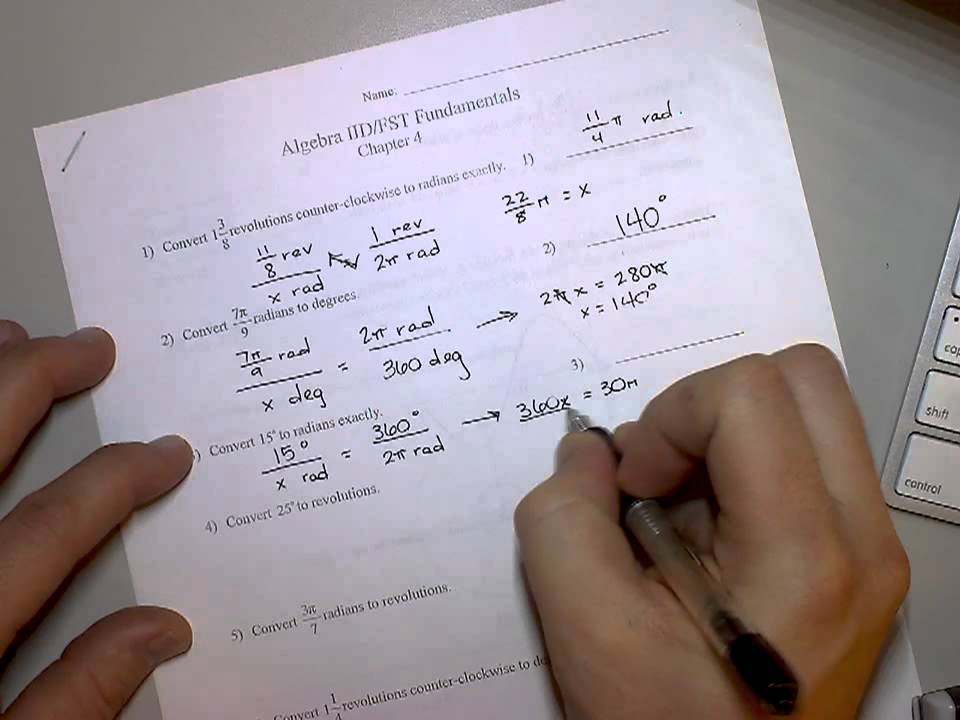 Name:
Algebra IID/FST Fundamentals
Chapter 4
1) Convert 1 3/8 revolutions counter-clockwise to radians exactly. 1) 11/4 π rad.
11/8 rev / x rad 1 rev / 2π rad
22/8 π = x
2) Convert 7π/9 radians to degrees. 2) 140°
7π/9 rad / x deg = 2π rad / 360 deg → 2π x = 280π
x = 140°
) Convert 15° to radians exactly. 3)
15° / x rad = 360° / 2π rad → 360x = 30π
4) Convert 25° to revolutions.
5) Convert 3π/7 radians to revolutions.
Convert 1 1/4 revolutions counter-clockwise to de
cap
shift
control